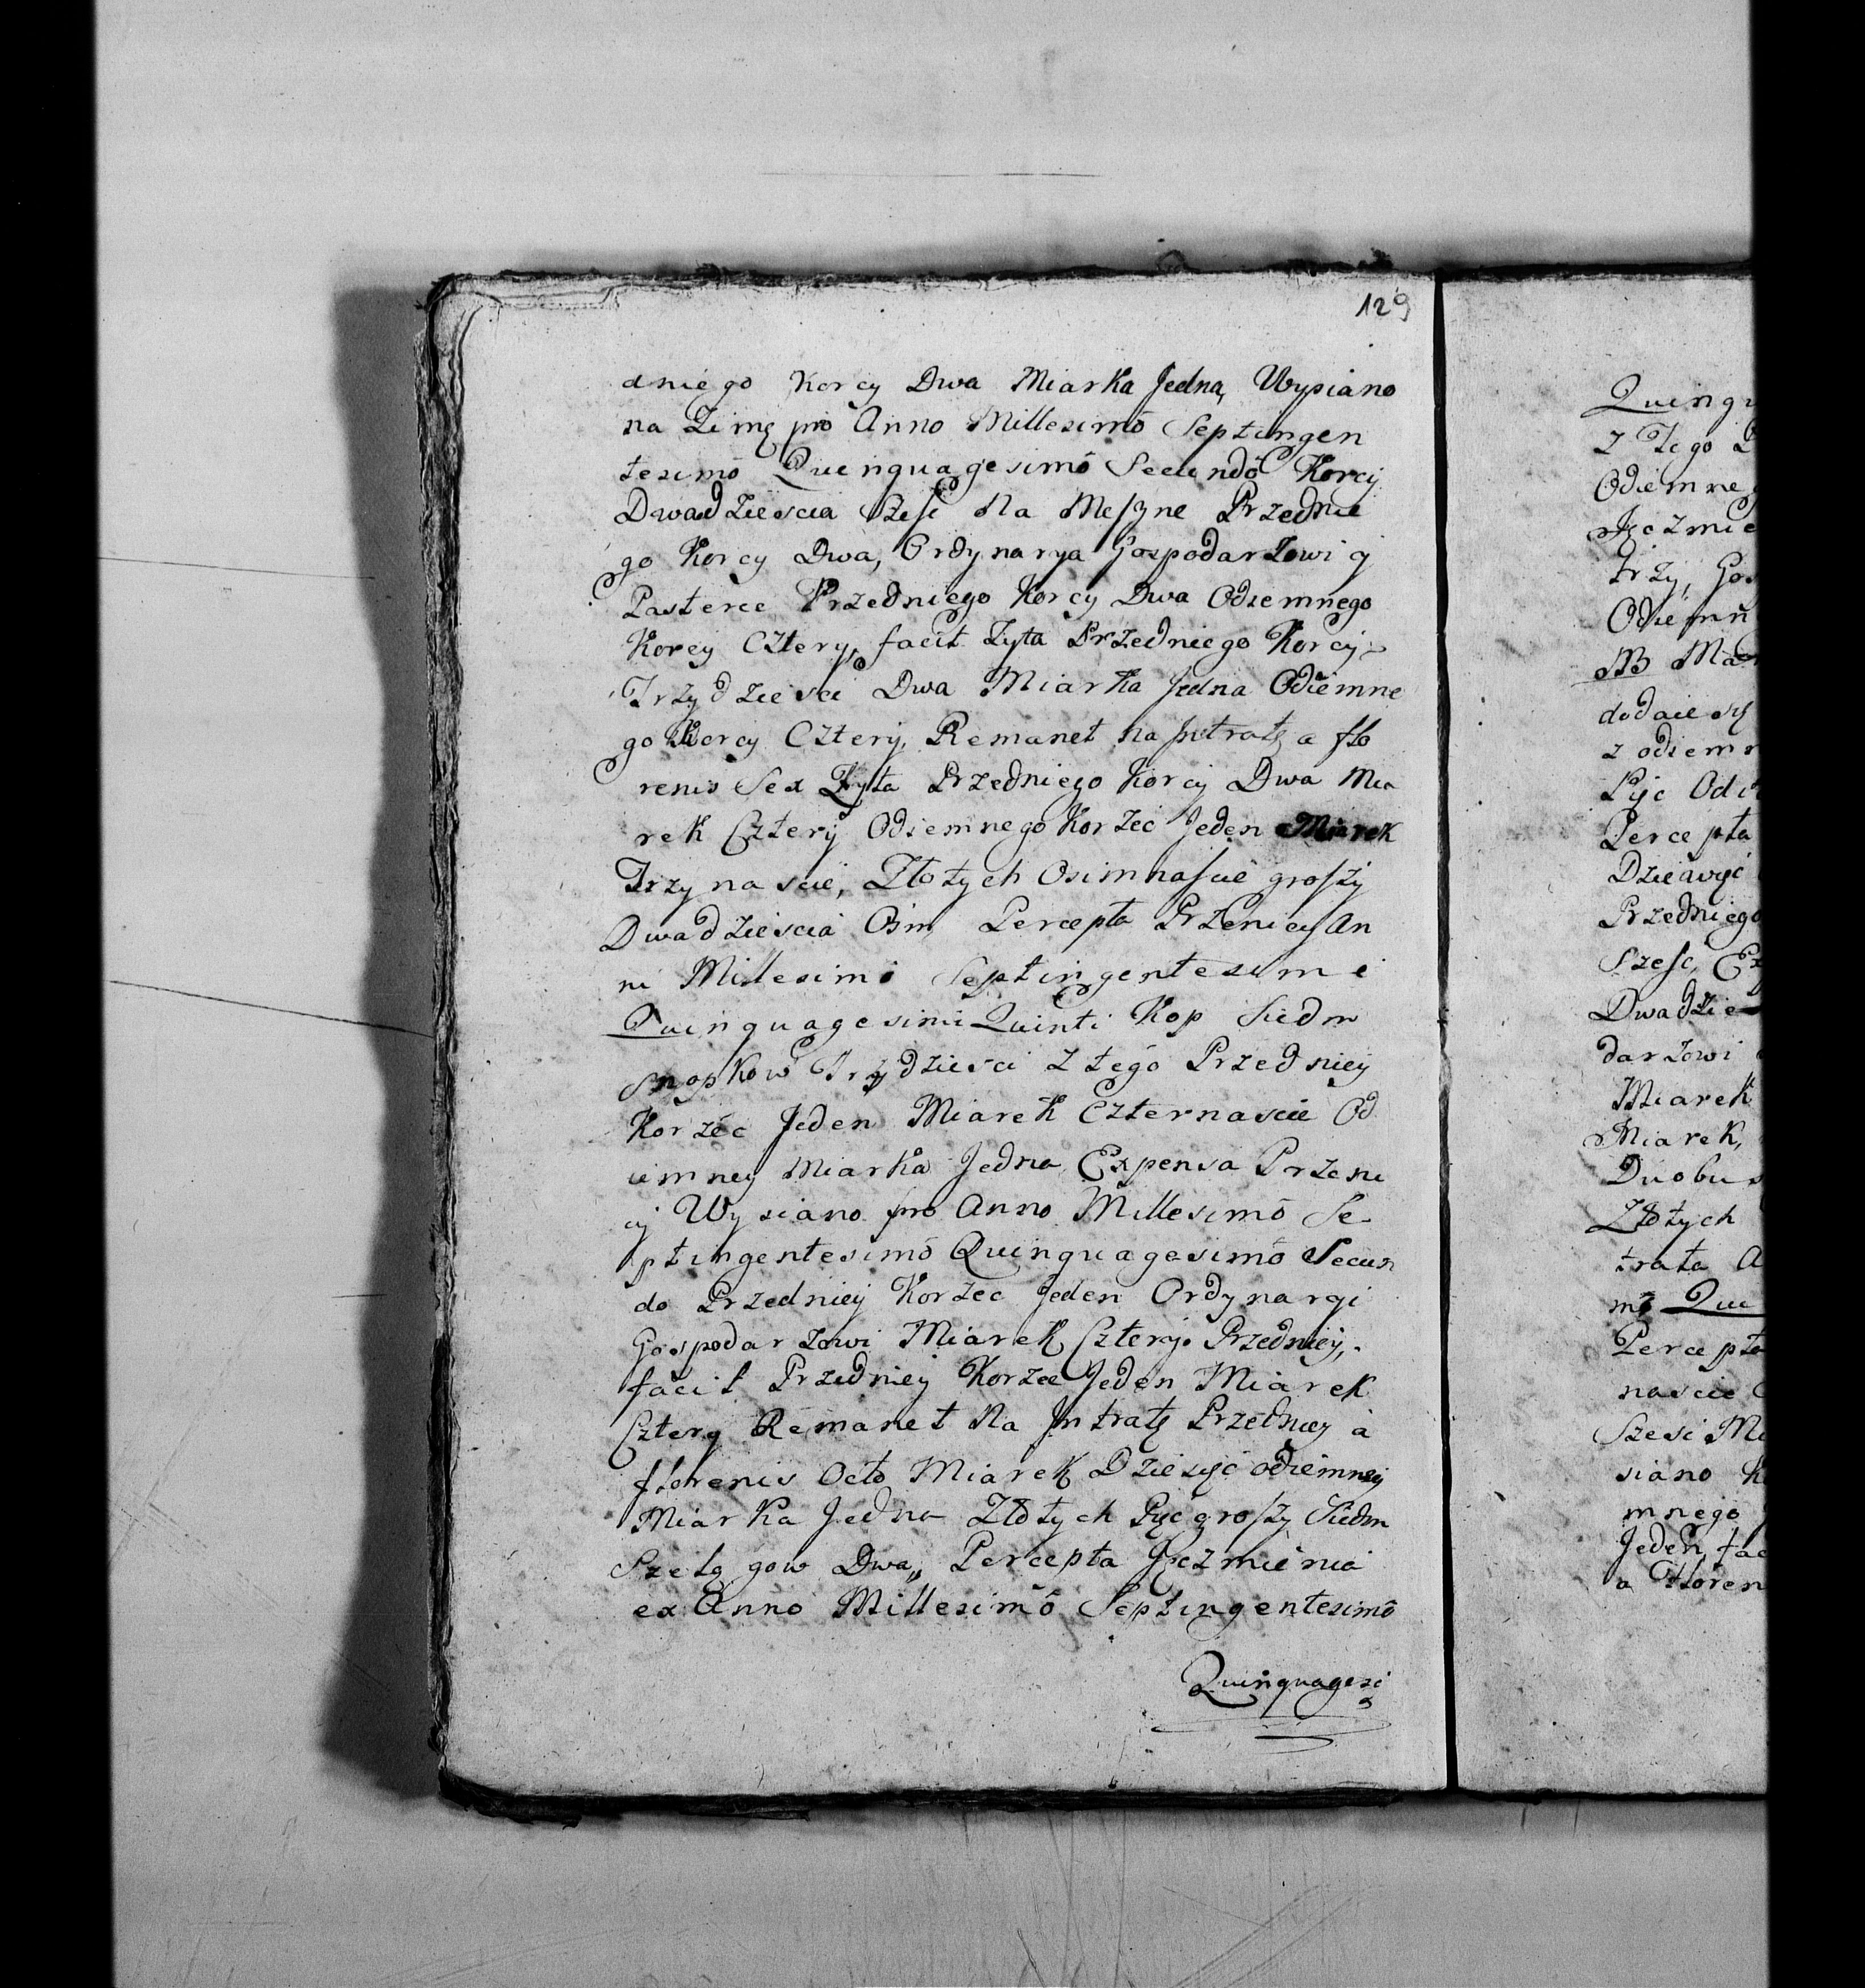 129
dniego Korcy Dwa Miarka Jedna, Wysiano
na Zimę pro Anno Millesimō Septingen
tesimō Quinquagesimō Secundō Korcy
Dwadzieścia Szesc Na Meszne Przednie
go Korcy Dwa, Ordynarya Gospodarzowi y
Pasterce Przedniego Korcy Dwa Odziemnego
Korcy Cztery, facit Zyta Przedniego Korcy
Trzydziesci Dwa Miarka Jedna Odziemne
go Korcy Cztery, Remanet na Jntratę a flo
renis Sex Zyta Przedniego Korcy Dwa Mia
rek Cztery Odziemnego Korzec Jeden Miarek
Trzynascie, Złotych Osimnascie groszy
Dwadziescia Osm, Percepta Przenicy An
ni Millesimi Septingentesimi
Quinquagesimi Quinti Kop Siedm
snopkow Trzydziesci z tego Przedniey
Korzéc Jeden Miarek Czternascie Od
ziemney Miarka Jedna, Expensa Przeni
cy Wysiano pro Anno Millesimō Se
ptingentesimō Quinquagesimō Secun
do Przedniey Korzec Jeden Ordynaryi
Gospodarzowi Miarek Cztery Przedniey,
facit Przedniey Korzec Jeden Miarek
Cztery Remanet Na Jntratę Przedniey a
florenis Octo Miarek Dziesięć odziemney
Miarka Jedna Złotych Pięc groszy Siedm
Szelągow Dwa, Percepta Jęczmienia
ex Anno Millesimō Septingentesimō
Quinquagesi
Quinqu
z Tego
Odziemne
Jęczmie
trzy, Gos
Odziemn
NB
dodaie się
z odziem
Pięc Odz
Percepta
Dziewięć
Przedniego
Szesc, Ex
Dwadzie
darzowi
Miarek
Miarek,
Duobus
Złotych
trata A
mō Qui
Percepta
nascie
Szesc Mi
siano K
mnego
Jeden, fac
a Floren